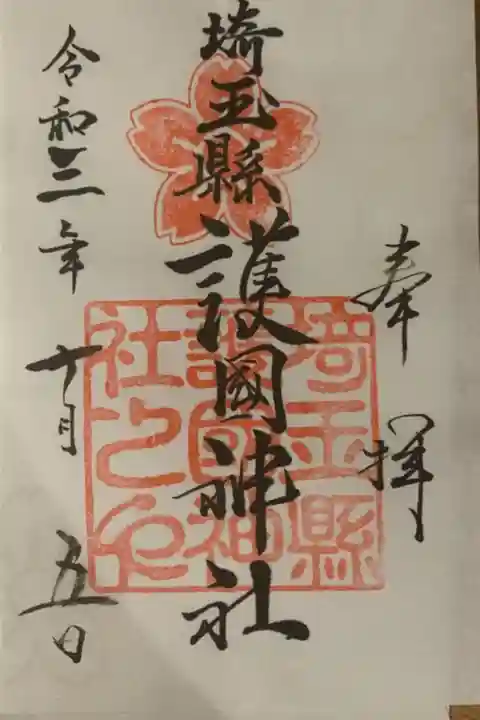 奉拝
埼玉縣護國神社
埼玉縣
護國神
社之印
令和三年十月五日